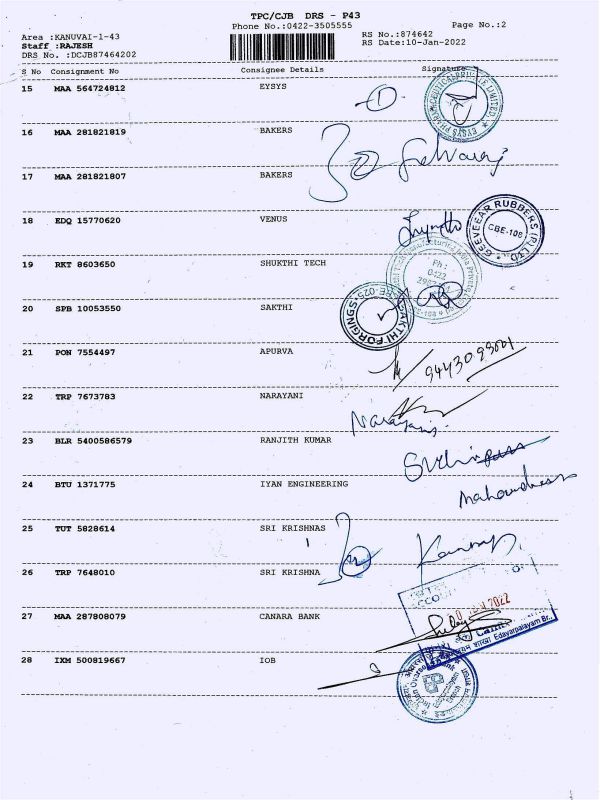 TPC/CJB DRS - P43
Phone No.:0422-3505555 Page No.:2
Area :KANUVAI-1-43 RS No.:874642
Staff :RAJESH RS Date:10-Jan-2022
DRS No. :DCJB87464202
S No Consignment No Consignee Details Signature
15 MAA 564724812 EYSYS
16 MAA 281821819 BAKERS
17 MAA 281821807 BAKERS
18 EDQ 15770620 VENUS
GEEVEEAR RUBBERS (P) LTD
CBE-108
19 RKT 8603650 SHUKTHI TECH
Ph :
0422
20 SPB 10053550 SAKTHI
SAKTHI FORGINGS
21 PON 7554497 APURVA
22 TRP 7673783 NARAYANI
Narayani
23 BLR 5400586579 RANJITH KUMAR
24 BTU 1371775 IYAN ENGINEERING
25 TUT 5828614 SRI KRISHNAS
26 TRP 7648010 SRI KRISHNA
2022
27 MAA 287808079 CANARA BANK
Edayarpalayam Br.,
28 IXM 500819667 IOB